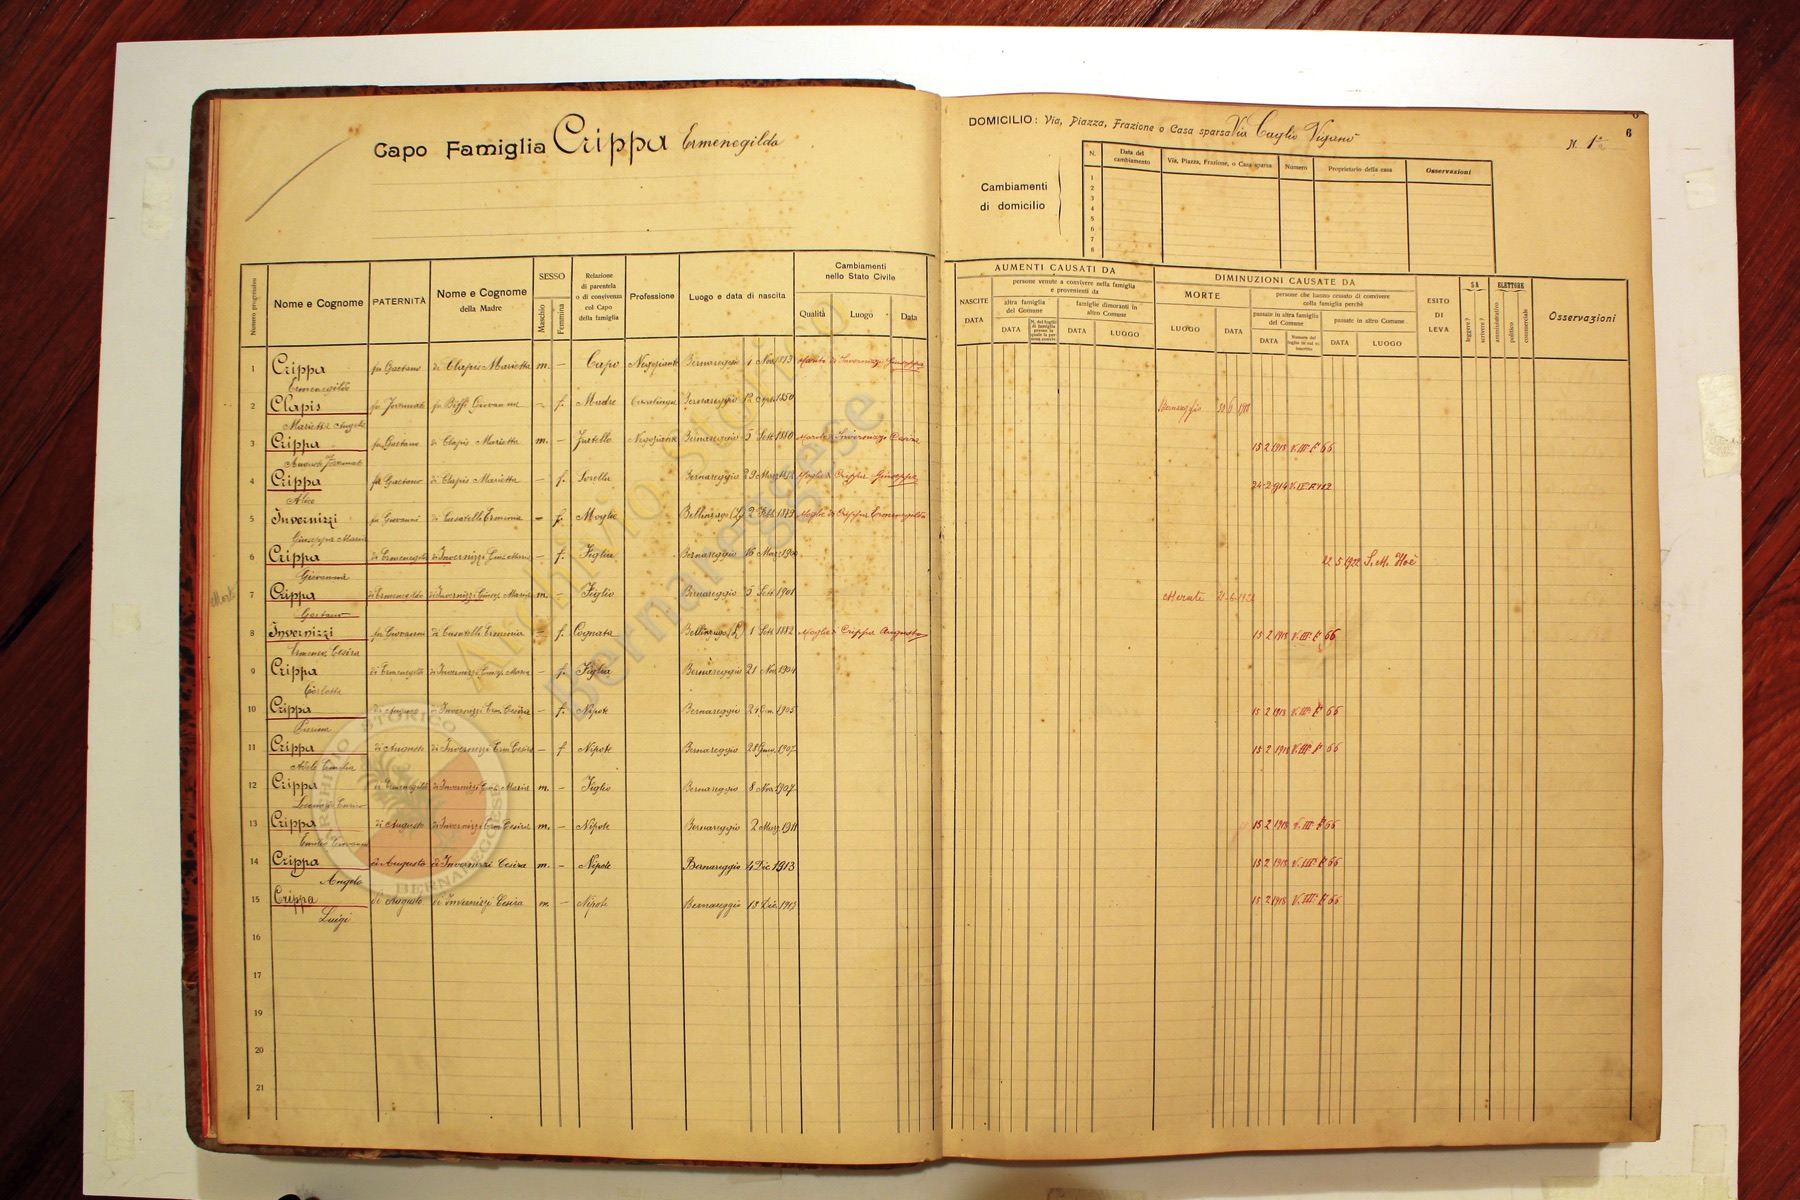 Capo Famiglia Crippa Ermenegildo
DOMICILIO: Via, Piazza, Frazione o Casa sparsa Via Caglio Viganò
N. 1
6
Cambiamenti di domicilio
N. Data del cambiamento Via, Piazza, Frazione, o Casa sparsa Numero Proprietario della casa Osservazioni
1
2
3
4
5
6
7
8
Numero progressivo Nome e Cognome PATERNITÀ Nome e Cognome della Madre SESSO Maschio Femmina Relazione di parentela o di convivenza col Capo della famiglia Professione Luogo e data di nascita Cambiamenti nello Stato Civile Qualità Luogo Data
AUMENTI CAUSATI DA
NASCITE DATA
persone venute a convivere nella famiglia e provenienti da
altra famiglia del Comune DATA
famiglie dimoranti in altro Comune DATA LUOGO
DIMINUZIONI CAUSATE DA
MORTE LUOGO DATA
persone che hanno cessato di convivere colla famiglia perchè
passate in altra famiglia del Comune DATA
passate in altro Comune DATA LUOGO
ESITO DI LEVA
SA leggere? scrivere?
ELETTORE amministrativo politico commerciale
Osservazioni
1 Crippa Ermenegildo fu Gaetano di Clapis Marietta m. – Capo Negoziante Bernareggio 1 Nov. 1873 Marito di Invernizzi Giuseppa
2 Clapis Marietta Angela fu Biffi Giovanna – f. Madre Casalinga Bernareggio 1850 Bernareggio
3 Crippa fu Gaetano di Clapis Marietta m. – Fratello Negoziante Bernareggio 5 Sett 1880 Marito di Invernizzi Cesira 15 2 1918 V. III F° 66
4 Crippa Alice fu Gaetano di Clapis Marietta – f. Sorella Bernareggio Moglie di Crippa Giuseppe 24-2-914
5 Invernizzi Giuseppa Maria fu Giovanni di Casatelli Erminia – f. Moglie Bellinzago (L.) 2 1879 Moglie di Crippa Ermenegildo
6 Crippa Giovanna di Ermenegildo di Invernizzi Gius. Maria – f. Figlia Bernareggio 16 Marz 1900 22 5 1922 S. M. Hoè
7 Crippa Gaetano di Ermenegildo di Invernizzi Giusep. Maria m. – Figlio Bernareggio 5 Sett. 1901 Merate
Morto
8 Invernizzi Cesira fu Giovanni di Casatelli Erminia – f. Cognata Bellinzago (L.) 1 Sett 1882 Moglie di Crippa Augusto 15 2 1918 V. III F° 66
9 Crippa Carlotta di Ermenegildo di Invernizzi Giusep. Maria – f. Figlia Bernareggio 21 Nov. 1904
10 Crippa di Augusto di Invernizzi Erm. Cesira – f. Nipote Bernareggio 1905 15 2 1918 V. III F° 66
11 Crippa Adele Emilia di Augusto di Invernizzi Erm. Cesira – f Nipote Bernareggio 28 1907 15 2 1918 V. III F° 66
12 Crippa Enrico di Ermenegildo di Invernizzi Gius. Maria m. – Figlio Bernareggio 8 Nov. 1907
13 Crippa Emilio Giovanni di Augusto di Invernizzi Erm. Cesira m. – Nipote Bernareggio 2 Marz. 1911 15 2 1918 V. III F° 66
14 Crippa Angelo di Augusto di Invernizzi Cesira m. – Nipote Bernareggio 4 Dic 1913 15 2 1918 V. III F° 66
15 Crippa Luigi di Augusto di Invernizzi Cesira m. – Nipote Bernareggio 15 2 1918 V. III F° 66
16
17
18
19
20
21
Archivio Storico
Bernareggese
ARCHIVIO STORICO BERNAREGGESE